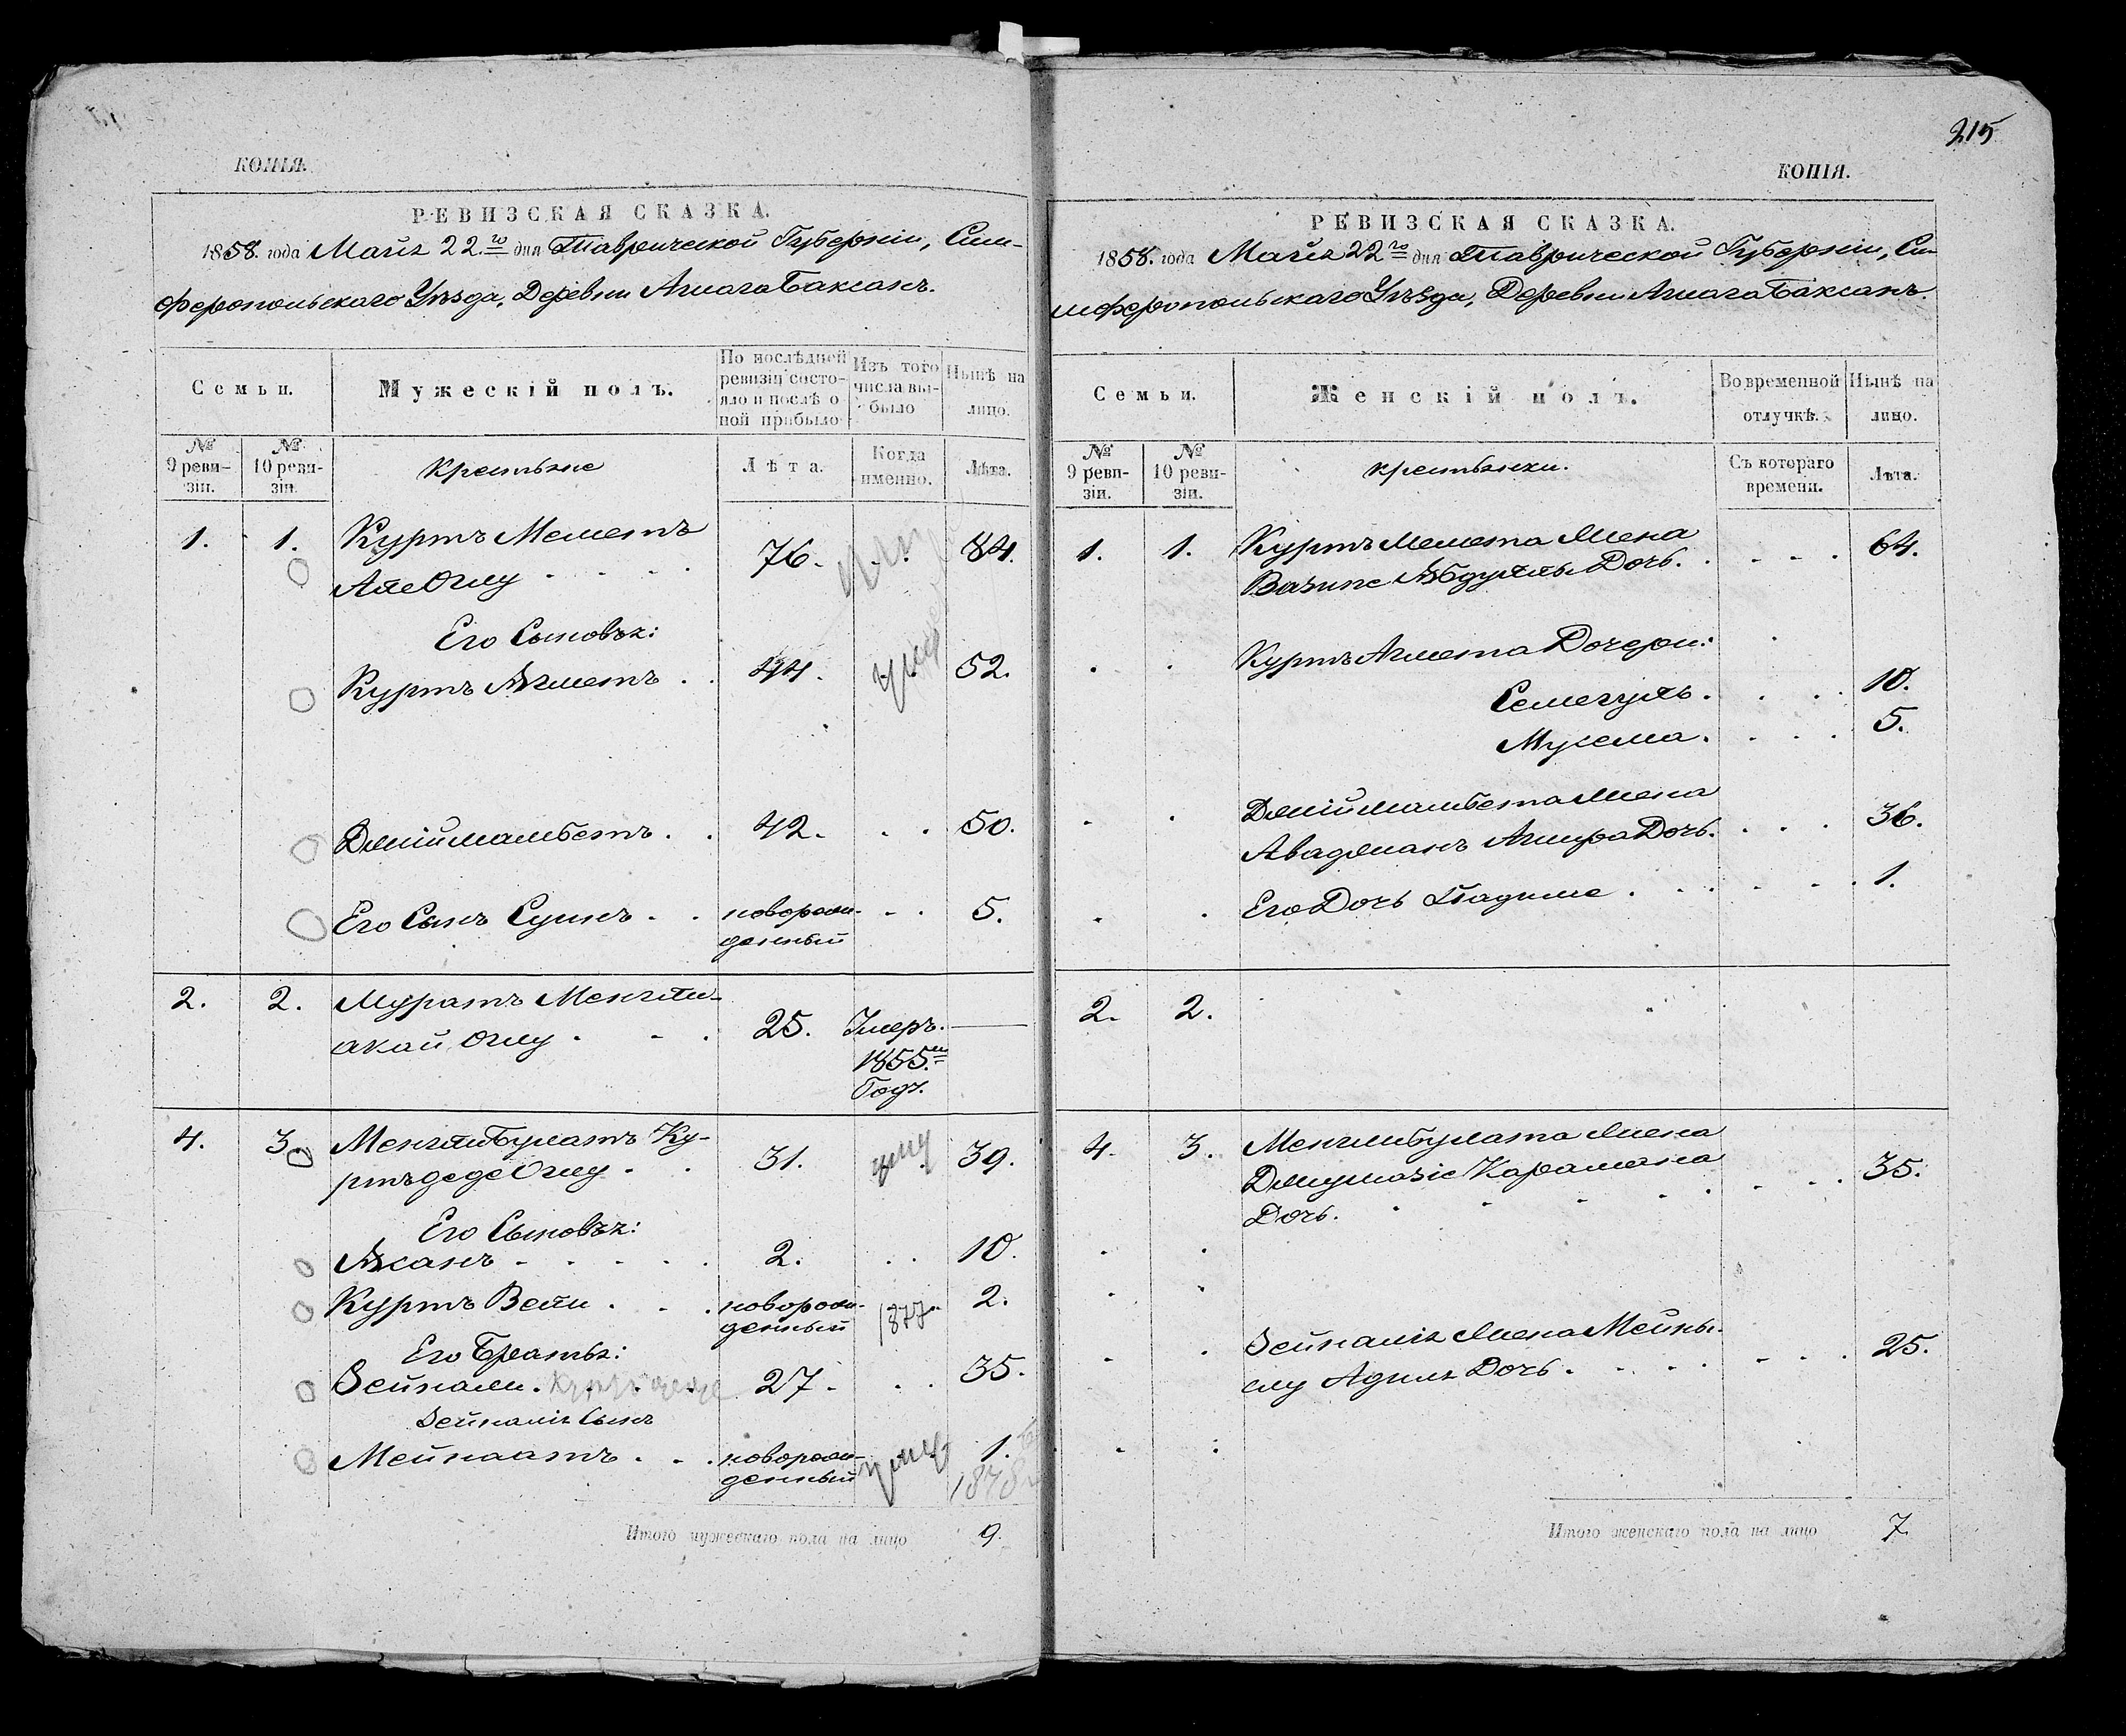 КОПІЯ.
РЕВИЗСКАЯ СКАЗКА.
1858. года Майя 22.го дня Таврической Губерніи, Сим-
феропольскаго Уѣзда, Деревни Ашага Баксанъ.
Семьи.
Мужескій полъ.
По послѣдней ревизіи состо-
яло и послѣ о-
ной прибыло
Изъ того числа вы-
было
Нынѣ на лицо.
№ 9 реви-
зіи.
№ 10 реви-
зіи.
Крестьяне
Лѣта.
Когда именно.
Лѣта.
1. 1. Куртъ Меметъ
Али Оглу 76. 84.
Его Сыновья:
Куртъ Ахметъ 44. 52.
Джіймамбетъ 42. 50.
Его Сынъ Суинъ новорож-
денный 5.
2. 2. Муратъ Менгли-
акай Оглу 25. Умеръ
1855.м
Годъ.
4. 3 Менгли Булатъ Ку-
ртъдеде Оглу 31. умер 39.
Его Сыновья:
Асанъ 2. 10.
Куртъ Вели новорож-
денный 1877 2.
Его Братья:
Зейнали. Куртъ деде 27. 35.
Зейналія Сынъ
Мейнаатъ новорож-
денный 1.
1878
Итого мужескаго пола на лицо 9.
215
КОПІЯ.
РЕВИЗСКАЯ СКАЗКА.
1858. года Майя 22го дня Таврической Губерніи, Си-
мферопольскаго Уѣзда, Деревни Ашага Баксанъ.
Семьи.
Женскій полъ.
Во временной отлучкѣ.
Нынѣ на лицо.
№ 9 реви-
зіи.
№ 10 реви-
зіи.
крестьянки.
Съ котораго времени.
Лѣта.
1. 1. Куртъ Мемета Жена
Вазипе Абдулль Дочь. 64.
Куртъ Ахмета Дочери:
Семегуль. 10.
Мусема. 5.
Джіймамбета Жена
Аваджанъ Амира Дочь. 36.
Его Дочь Хадише 1.
2. 2.
4. 3. Менглибулата Жена
Джумазіе Карамана
Дочь. 35.
Зейналія Жена Мейны-
слу Адиля Дочь. 25.
Итого женскаго пола на лицо 7.